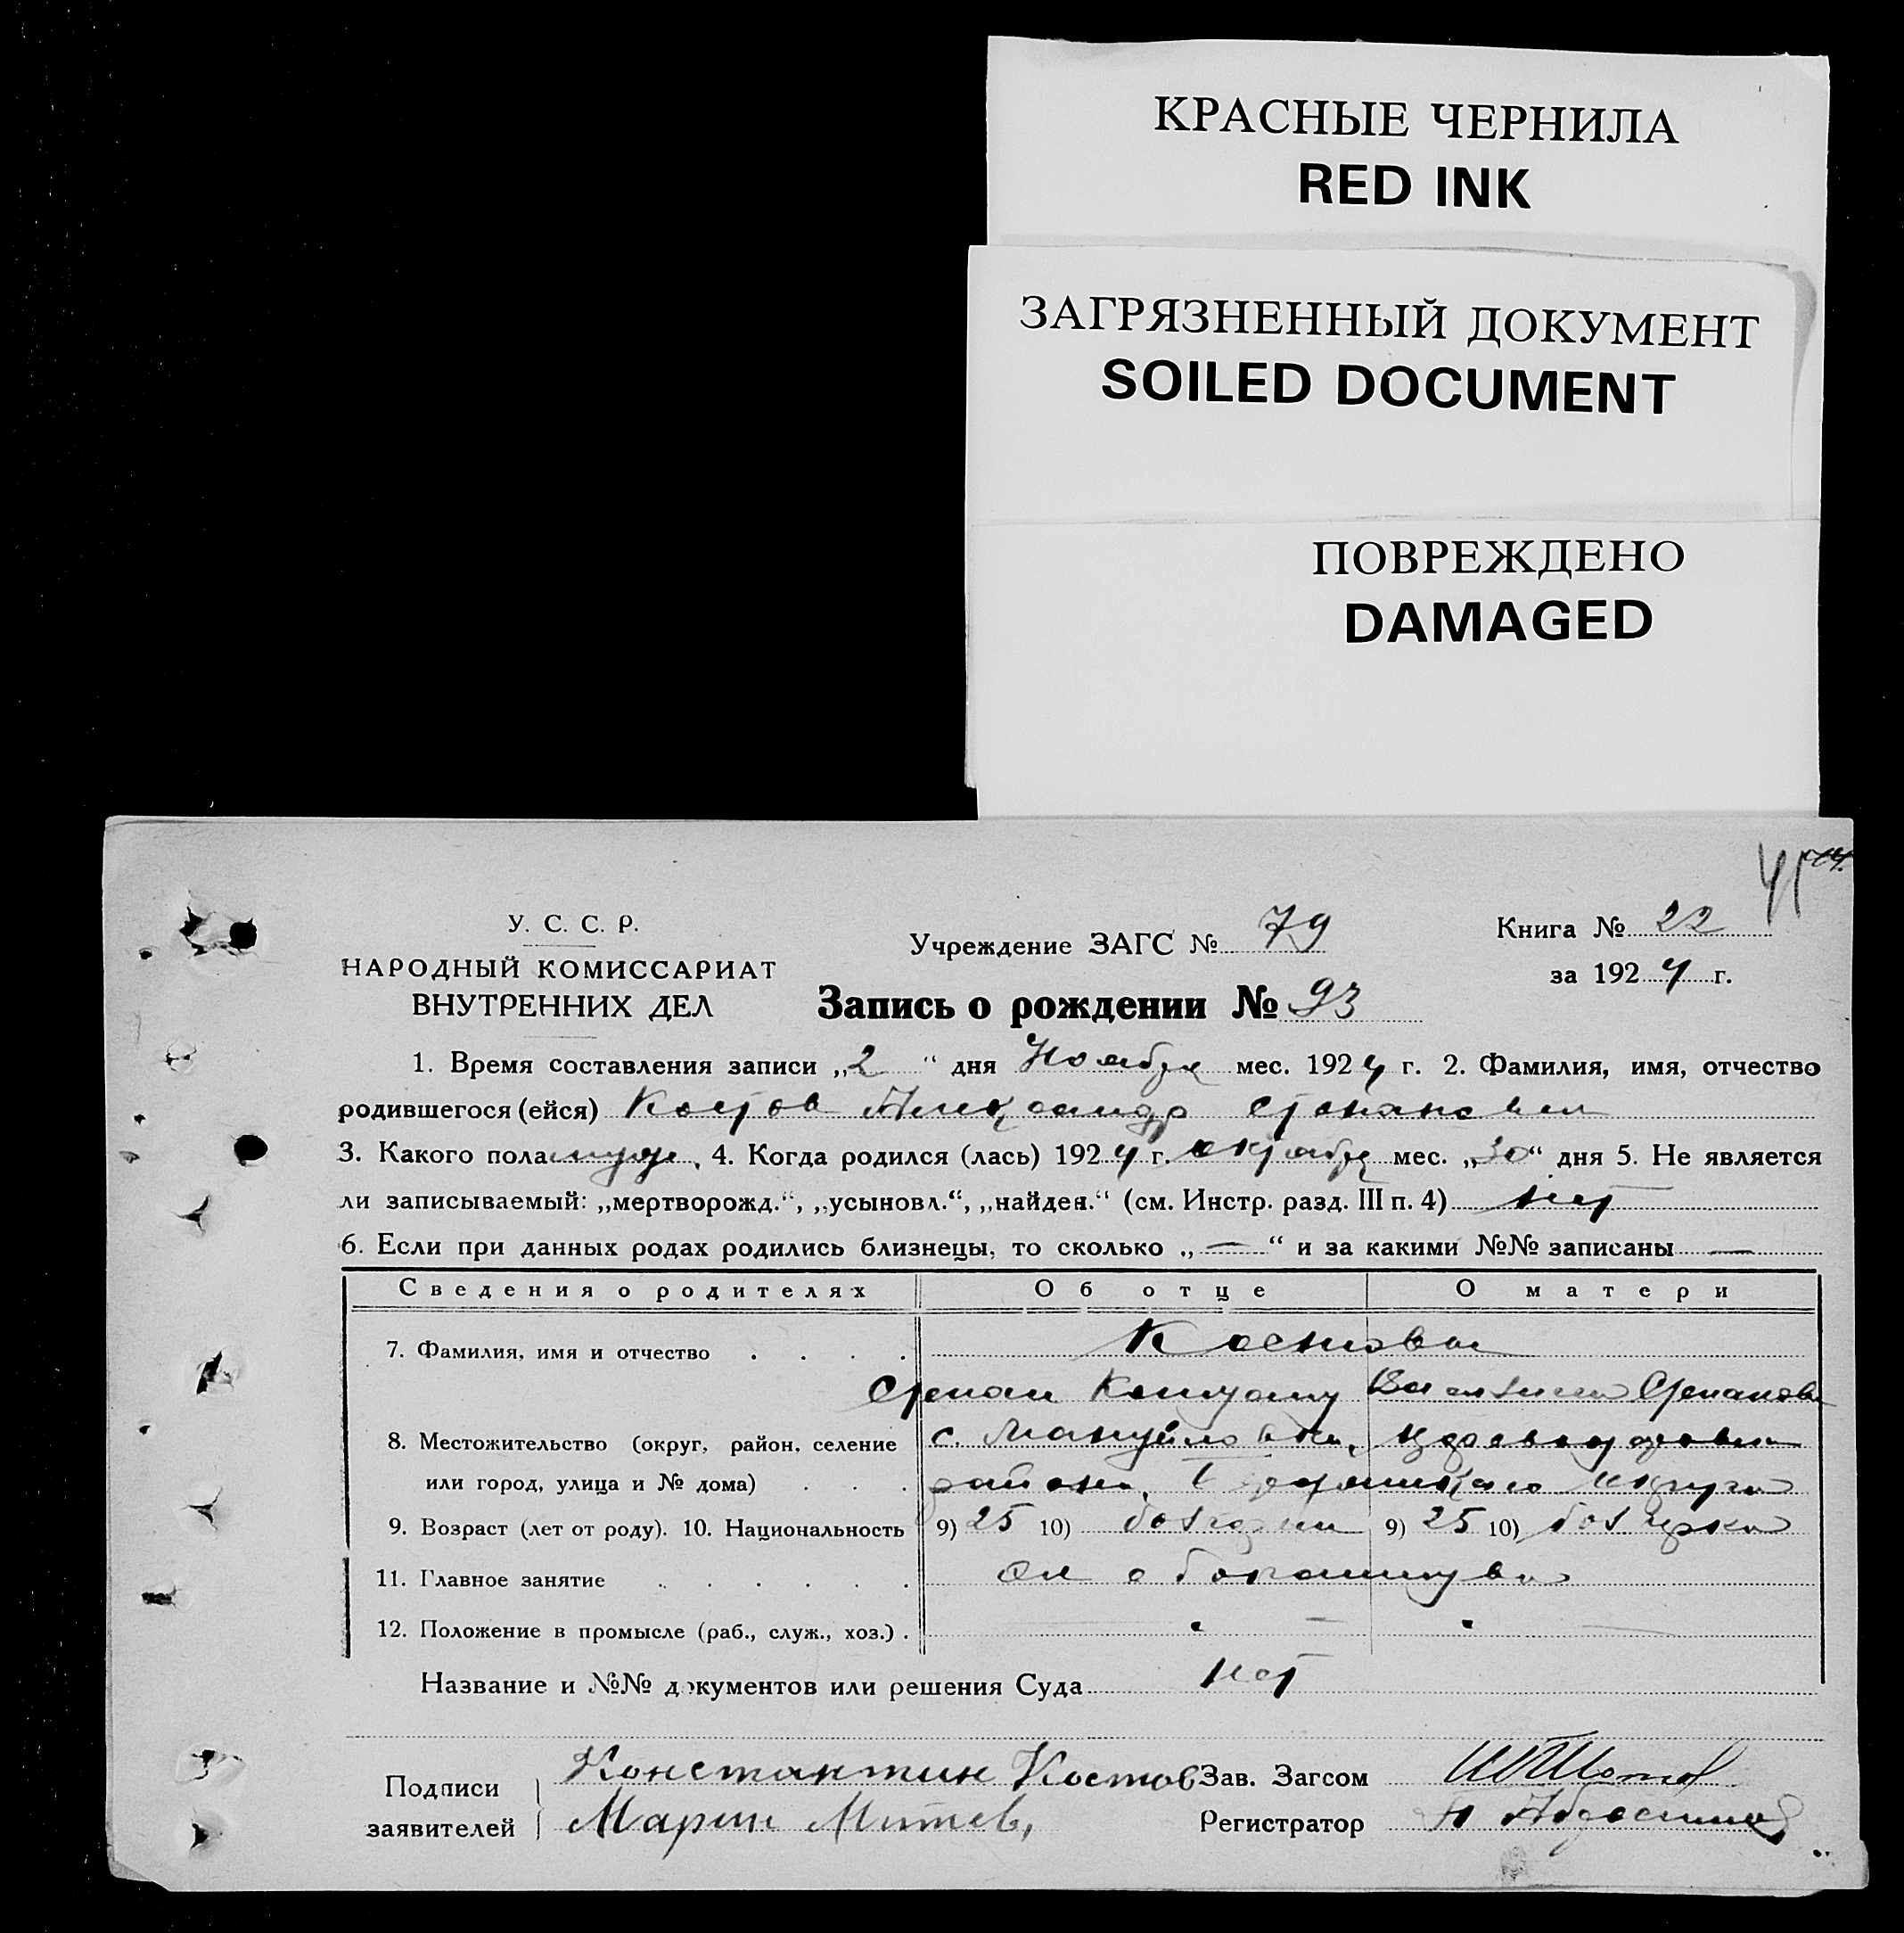 КРАСНЫЕ ЧЕРНИЛА
RED INK
ЗАГРЯЗНЕННЫЙ ДОКУМЕНТ
SOILED DOCUMENT
ПОВРЕЖДЕНО
DAMAGED
У. С. С. Р.
НАРОДНЫЙ КОМИССАРИАТ
ВНУТРЕННИХ ДЕЛ
Учреждение ЗАГС № 79
Книга № 22
за 1924 г.
Запись о рождении № 93
1. Время составления записи „2“ дня Ноября мес. 1924 г. 2. Фамилия, имя, отчество
родившегося (ейся) Костов Александр Степанович
3. Какого пола муж. 4. Когда родился (лась) 1924 г. октября мес. „30“ дня 5. Не является
ли записываемый: „мертворожд.“, „усыновл.“, „найден.“ (см. Инстр. разд. III п. 4) нет
6. Если при данных родах родились близнецы, то сколько „—“ и за какими №№ записаны —
Сведения о родителях Об отце О матери
7. Фамилия, имя и отчество . . . . Костовы
Степан Степанов
8. Местожительство (округ, район, селение с. Мануйловка,
или город, улица и № дома) . . . района, округа
9. Возраст (лет от роду). 10. Национальность 9) 25 10) болгарин 9) 25 10) болгарка
11. Главное занятие . . . . . .
12. Положение в промысле (раб., служ., хоз.) .
Название и №№ документов или решения Суда нет
Подписи Константин Костов Зав. Загсом
заявителей Марин Митев, Регистратор